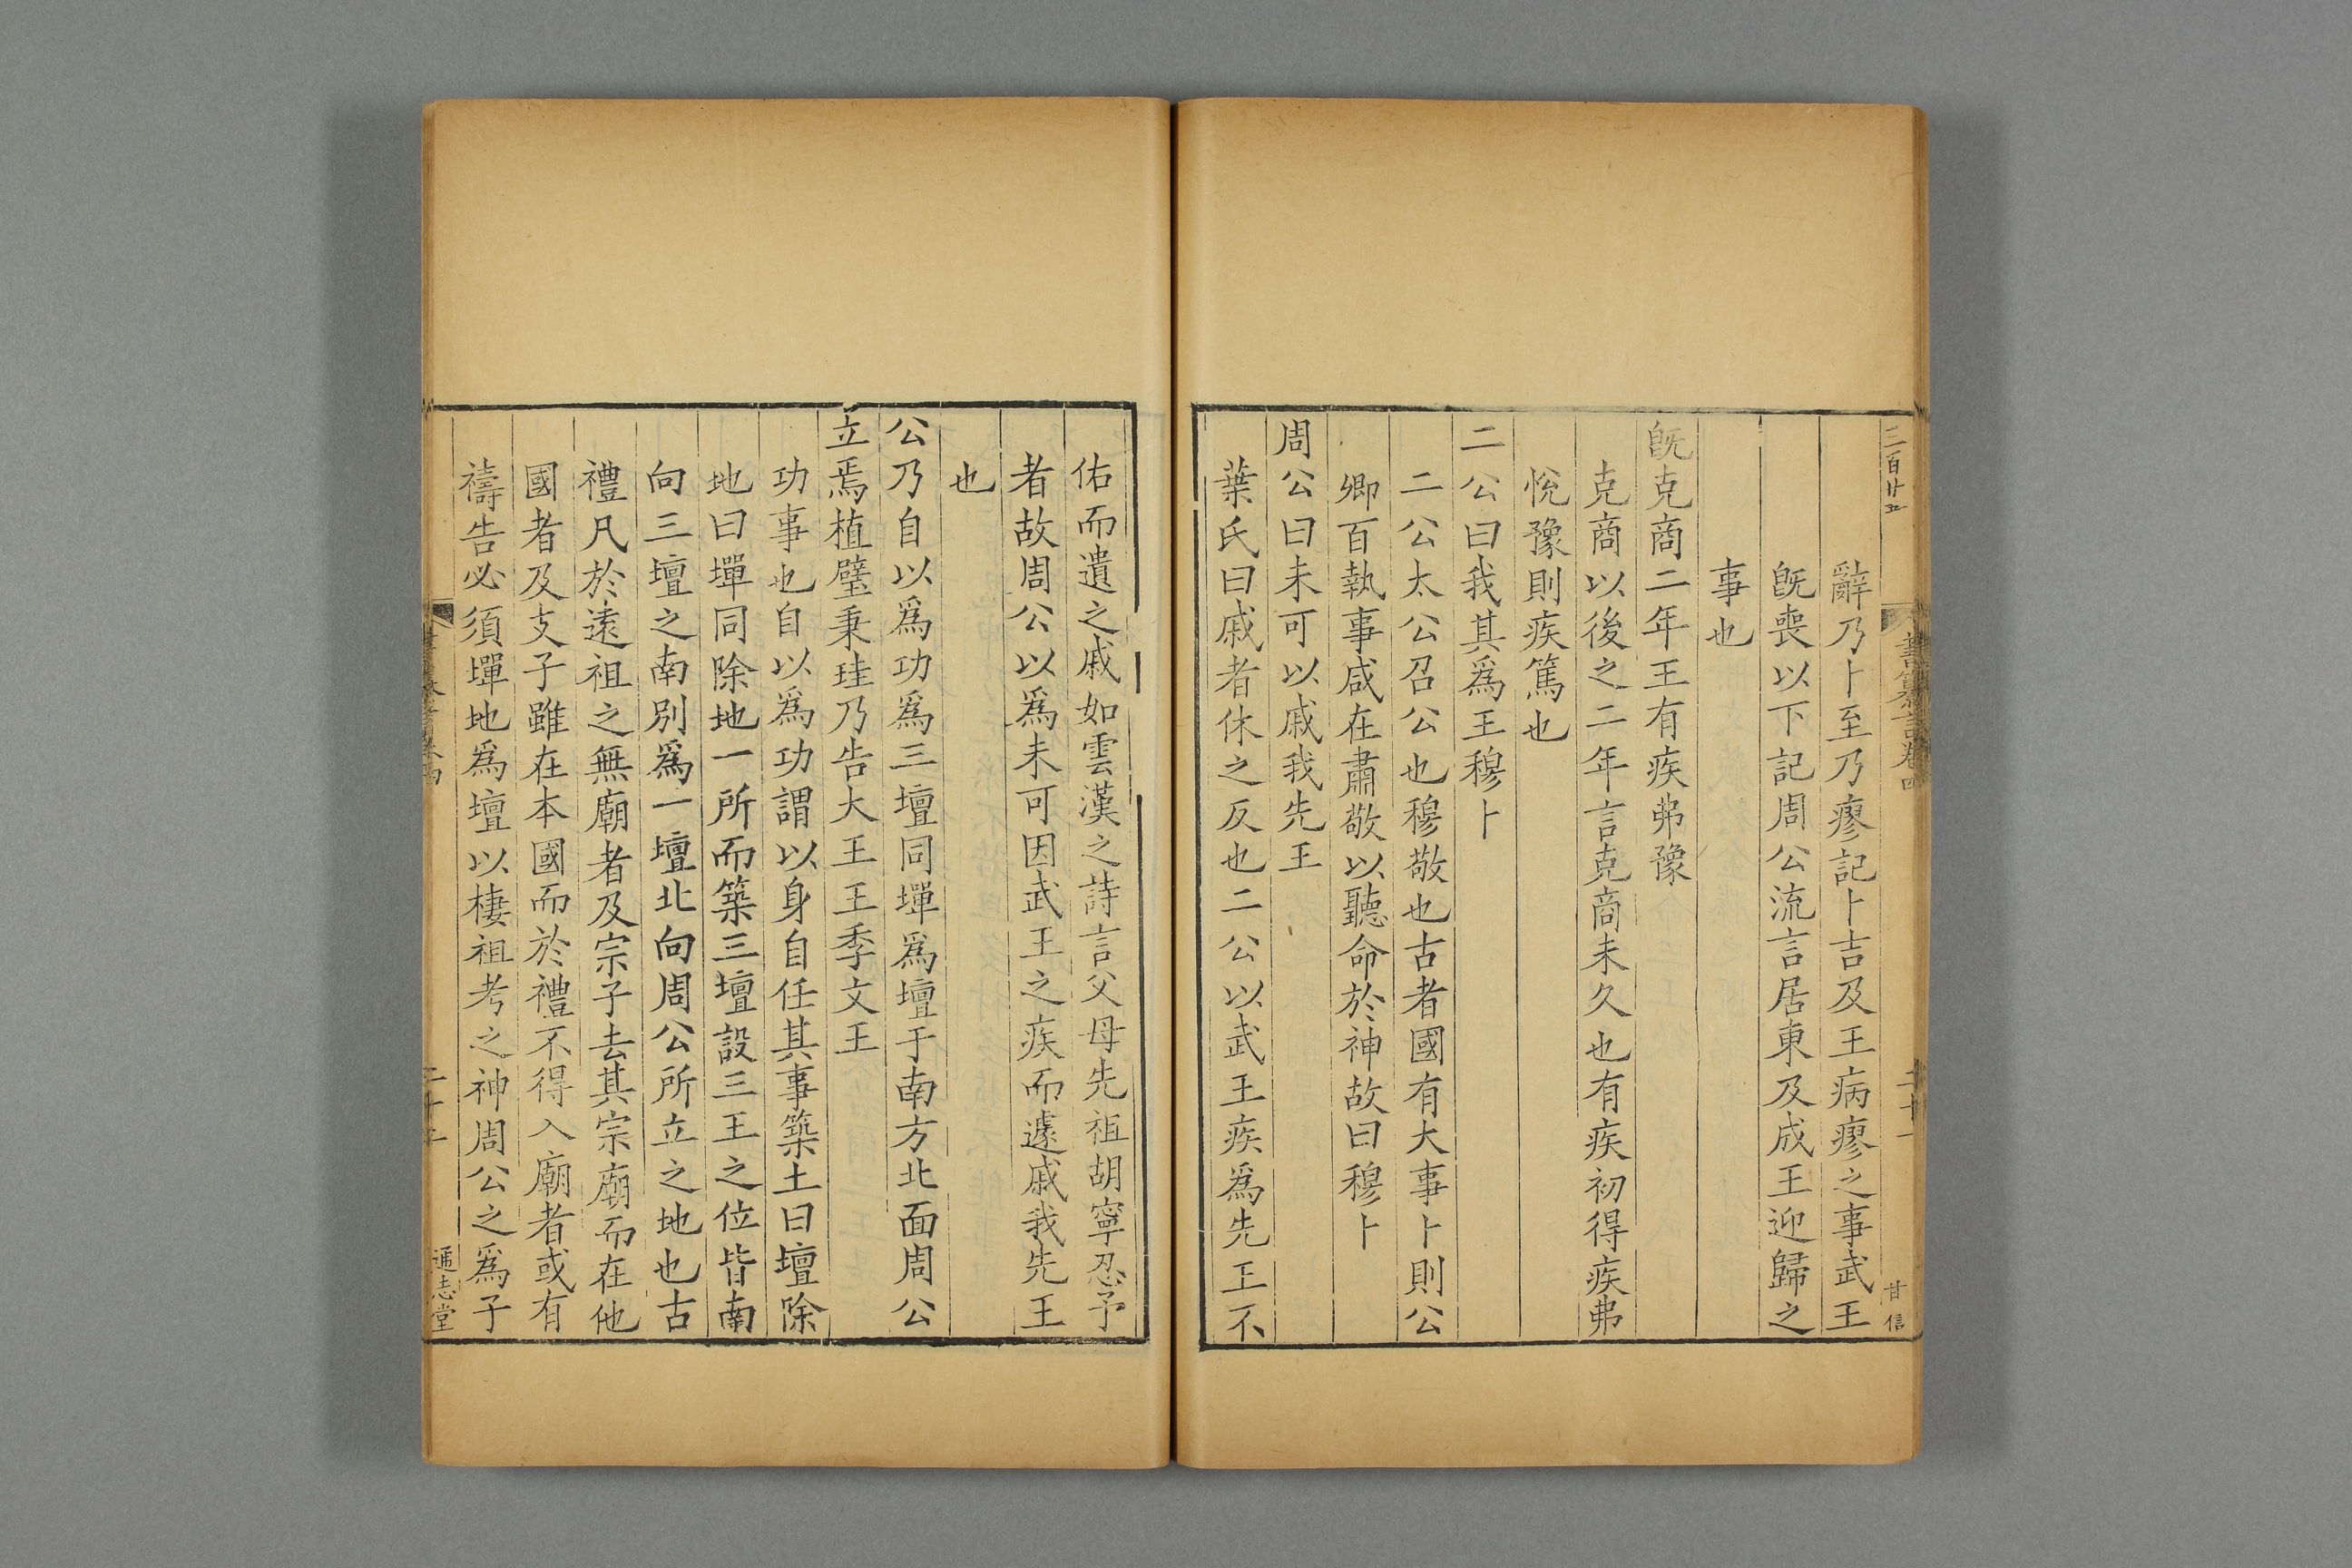 三百廿五
書纂言卷四
二十一
甘信
辭乃卜至乃瘳記卜吉及王病瘳之事武王
旣喪以下記周公流言居東及成王迎歸之
事也
旣克商二年王有疾弗豫
克商以後之二年言克商未久也有疾初得疾弗
悅豫則疾篤也
二公曰我其爲王穆卜
二公太公召公也穆敬也古者國有大事卜則公
卿百執事咸在肅敬以聽命於神故曰穆卜
周公曰未可以戚我先王
葉氏曰戚者休之反也二公以武王疾爲先王不
佑而遺之戚如雲漢之詩言父母先祖胡寧忍予
者故周公以爲未可因武王之疾而遽戚我先王
也
公乃自以爲功爲三壇同墠爲壇于南方北面周公
立焉植璧秉珪乃告大王王季文王
功事也自以爲功謂以身自任其事築土曰壇除
地曰墠同除地一所而築三壇設三王之位皆南
向三壇之南別爲一壇北向周公所立之地也古
禮凡於遠祖之無廟者及宗子去其宗廟而在他
國者及支子雖在本國而於禮不得入廟者或有
禱告必須墠地爲壇以棲祖考之神周公之爲子
通志堂